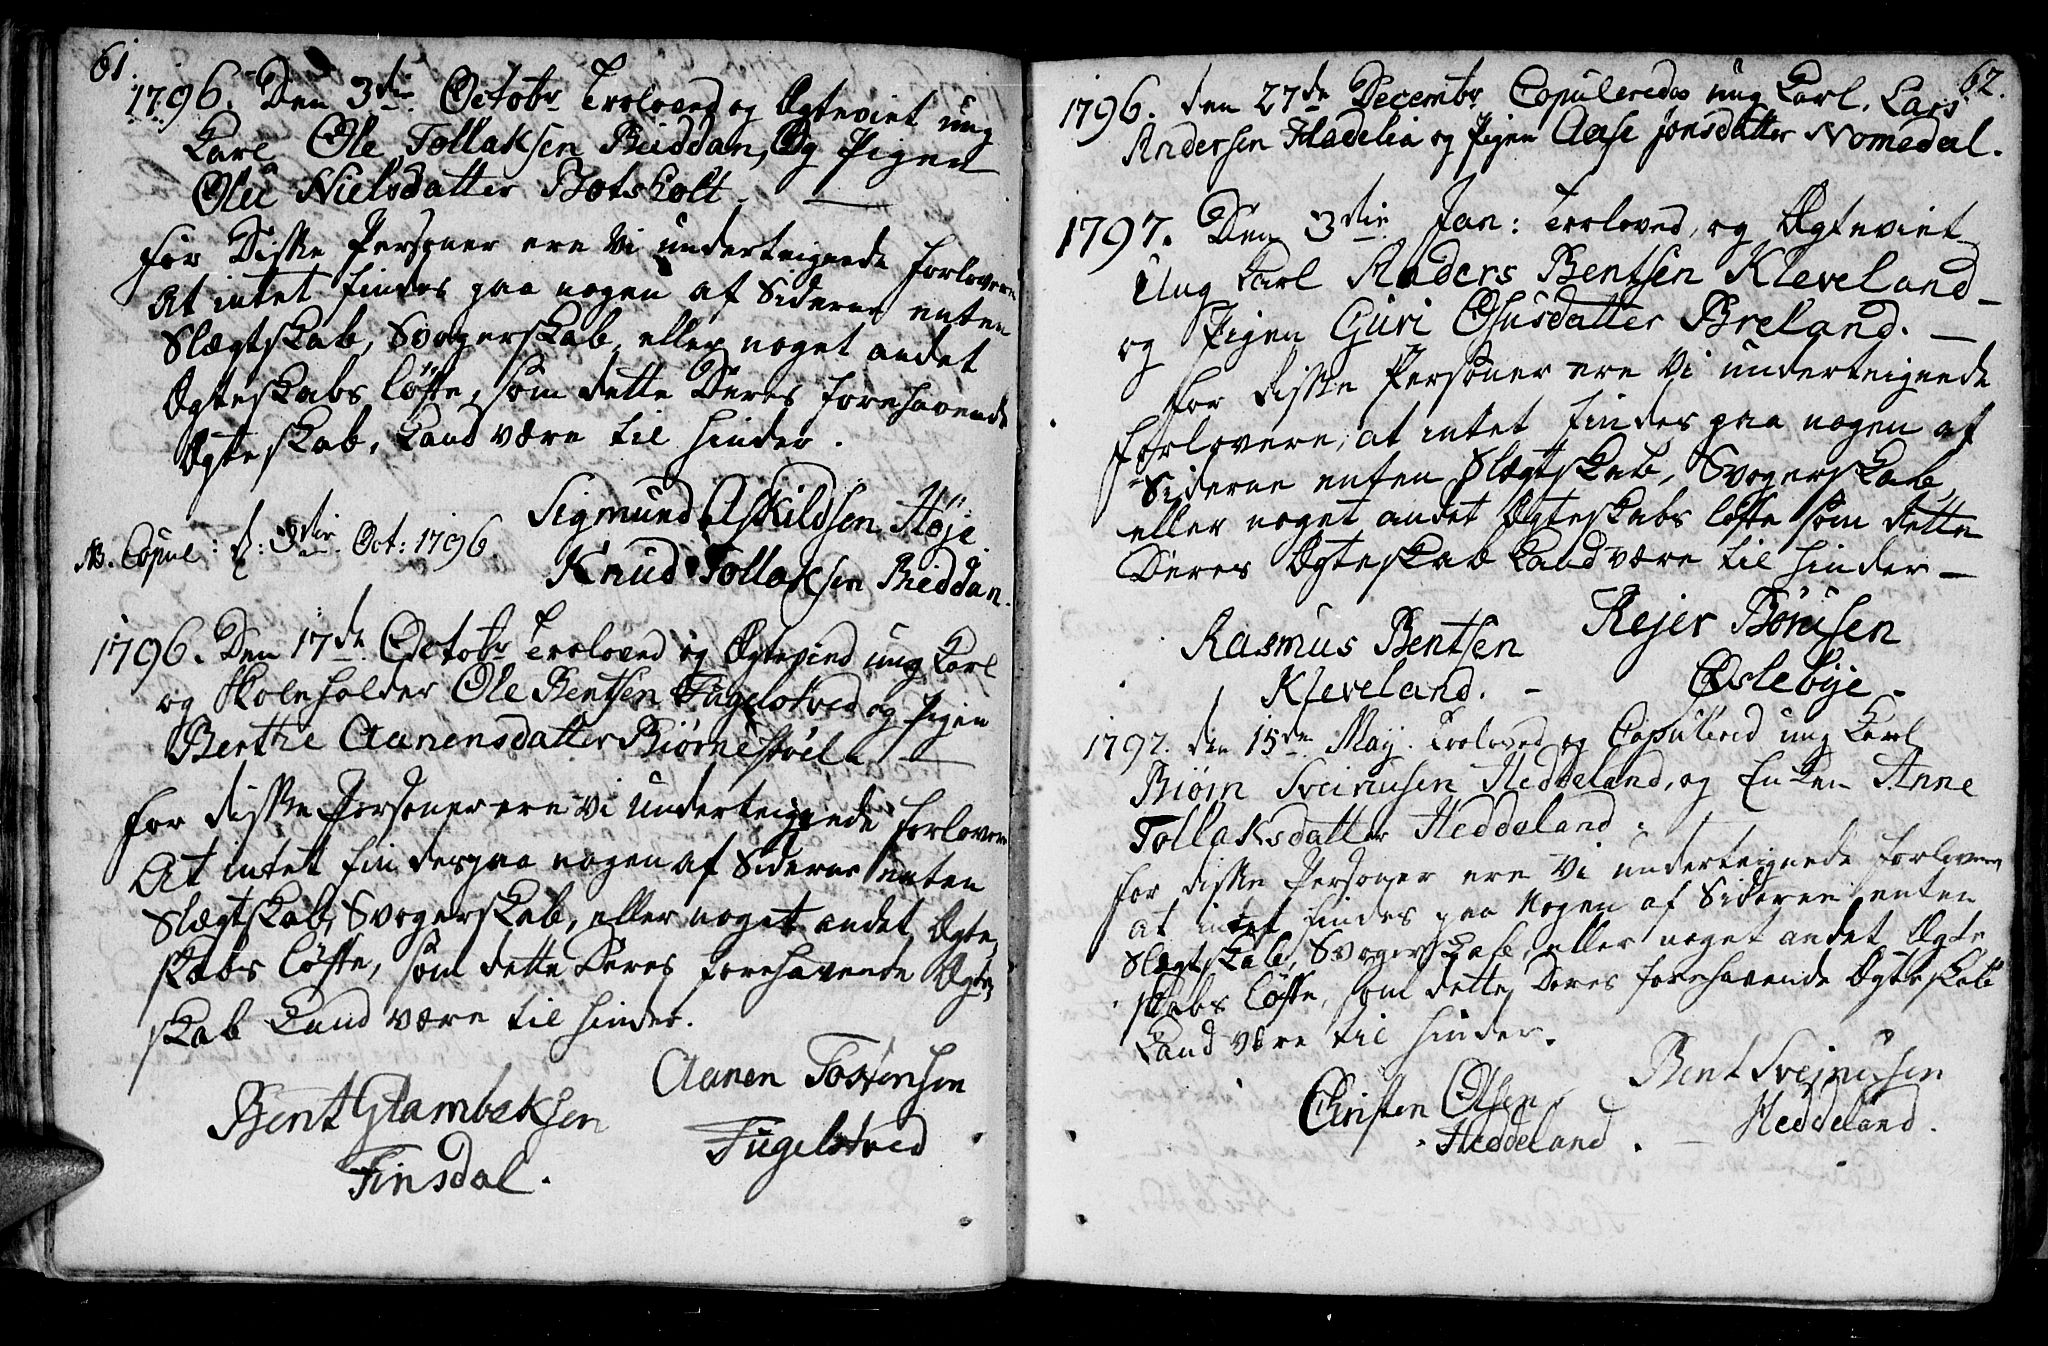 61.
1796. Den 3die Octobr Troloved og Ægteviet ung
Karl Ole Tollaksen Reiddan, Og Pigen
Oleu Nielsdatter Botsholt.
For Diſſe Personer ere Vi underteignede Forlovere
At intet findes paa nogen af Siderne enten
Slægtskab, Svogerskab, eller noget andet
Ægteskabs Løfte, som dette Deres forehavende
Ægteskab, Kand være til Hinder.
Sigmund Askildsen Høje.
NB. Copul: d: 3die Oct: 1796.
Knud Tollaksen Reiddan.
1796. Den 17de Octobr Troloved og Ægtevied ung Karl
og Skoleholder Ole Bentsen Fugelstved og Pigen
Berthe Aanensdatter Biørnestøel
For diſſe Personer ere Vi underteignede Forlovere
At intet findes paa nogen af Siderne enten
Slægtskab, Svogerskab, eller noget andet Ægte
skabs Løfte, som dette Deres forehavende Ægte
skab Kand være til Hinder.
Aanen Tostensen
Bent Glambeksen
Fugelstved
Finsdal.
62.
1796. den 27de Decembr Copuleredes ung Karl, Lars
Andersen Fladelia og Pigen Aase Jonsdatter Nomedal.
1797. Den 3die Jan: Troloved, og Ægteviet
Ung Karl Anders Bentsen Kleveland
og Pigen Guri Osusdatter Breland.
For diſſe Personer ere Vi underteignede
Forlovere, at intet findes paa nogen af
Siderne enten Slægtskab, Svogerskab,
eller noget andet Ægteskabs Løfte som dette
Deres Ægteskab Kand være til Hinder
Rasmus Bentsen Rejer Børusen
Kleveland. Øslebye.
1797. den 15de May. Troloved og Copulered ung Karl
Biørn Sveinusen Heddeland, og Enken Anne
Tollaksdatter Heddeland.
For diſſe Personer ere Vi underteignede Forlovere
at intet findes paa Nogen af Siderne enten
Slægtskab, Svogerskab, eller noget andet Ægte
skabs Løfte, som dette Deres forehavende Ægteskab
Kand være til Hinder.
Bent Svejnusen
Christen Olsen
Heddeland.
Heddeland.